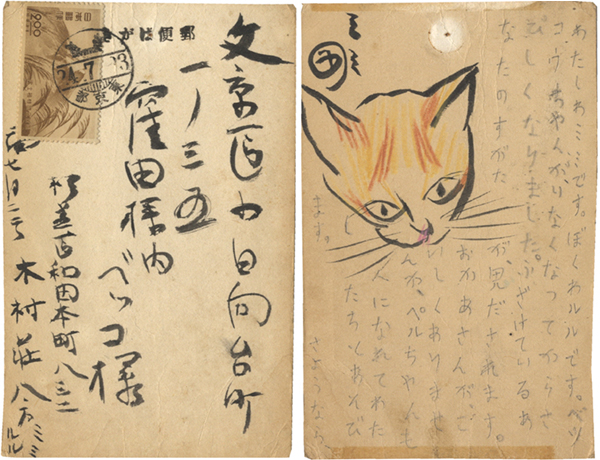 郵便はがき
2.00
24.7.
文京区小日向台町
一ノ三五
窪田様内
ペッコ様
杉並区和田本町八三二
木村荘八方
ミミ
ルル
ミミ
あたしわミミです。ぼくわルルです。ペッ
コウちゃんがいなくなってからさ
びしくなりました。ふざけているあ
なたのすがた
だされます。
おかあさんが
しくありませ
んか、ペルちゃんも
人になれてわた
したちとあそび
ます。
さようなら